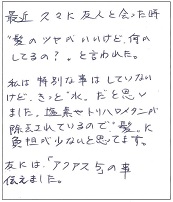 最近 久々に友人と会った時
"髪のツヤがいいけど、何か
してるの？"と言われた。
私は特別な事はしていない
けど、きっと"水"だと思い
ました。塩素やトリハロメタンが
除去されているので"髪"に
負担が少ないと思ってます。
友には、「アクアス5」の事
伝えました。